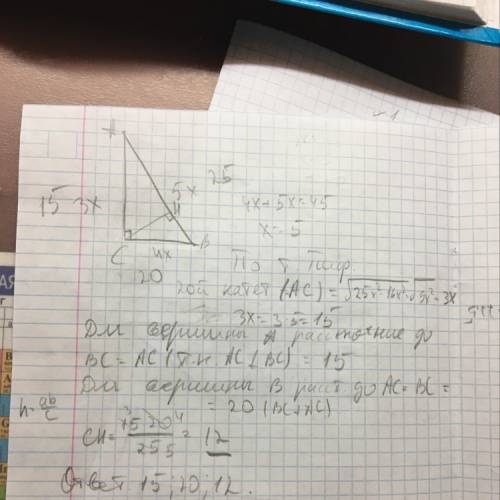 A
15 3x
5x 25
H
C
4x
B
20
4x+5x=45
x=5
По т Пиф
2ой катет (AC) = √25x²-16x² = √9x² = 3x
3x=3·5=15
Для вершины A расстояние до
BC = AC (т.к. AC⊥BC) = 15
Для вершины B расст. до AC = BC =
= 20 (BC⊥AC)
h=ab/c
CH = 15·20/25 = 12
Ответ 15; 20; 12.